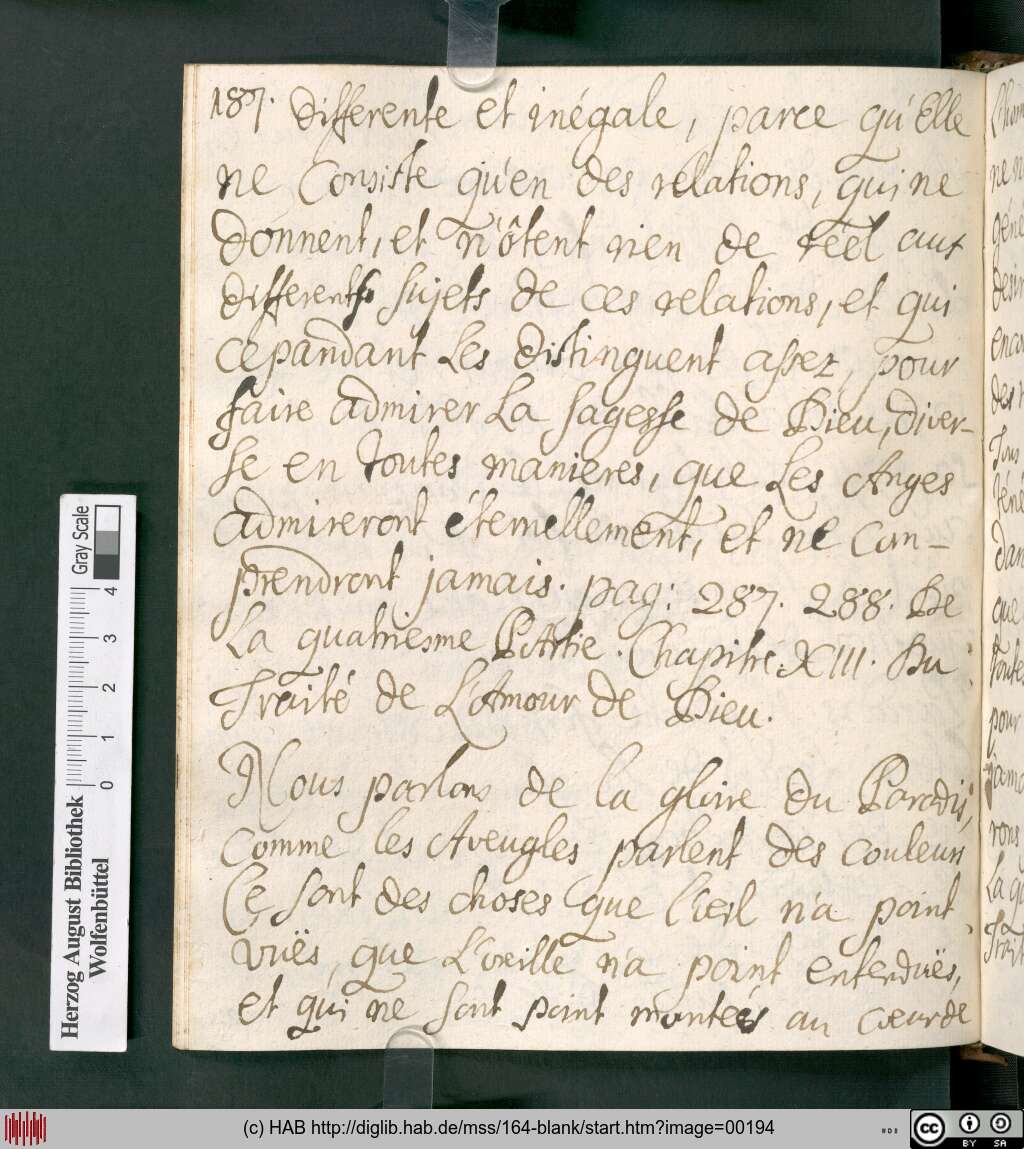 187. differente et inégale, parce qu'Elle
ne Consiste qu'en des relations, qui ne
donnent, et n'ôtent rien de réel aux
differents sujets de ces relations, et qui
cepandant Les distinguent assez, pour
faire admirer La sagesse de Dieu, diver-
se en toutes manieres, que Les Anges
admireront éternellement, et ne com-
prendront jamais. pag: 287. 288. De
La quatriesme Partie. Chapitre. XIII. Du
Traité de L'Amour de Dieu.
Nous parlons de la gloire du Paradis,
comme les Aveugles parlent des couleurs
Ce sont des choses que l'œil n'a point
vuës, que L'oreille n'a point entenduës,
et qui ne sont point montées au cœur de
l'hom
ne n
géné
desir
enco
des
Tous
dan
que
toutes
pour
jama
rons
La q
Trait
Gray Scale
0 1 2 3 4
Herzog August Bibliothek
Wolfenbüttel
(c) HAB http://diglib.hab.de/mss/164-blank/start.htm?image=00194
cc BY SA